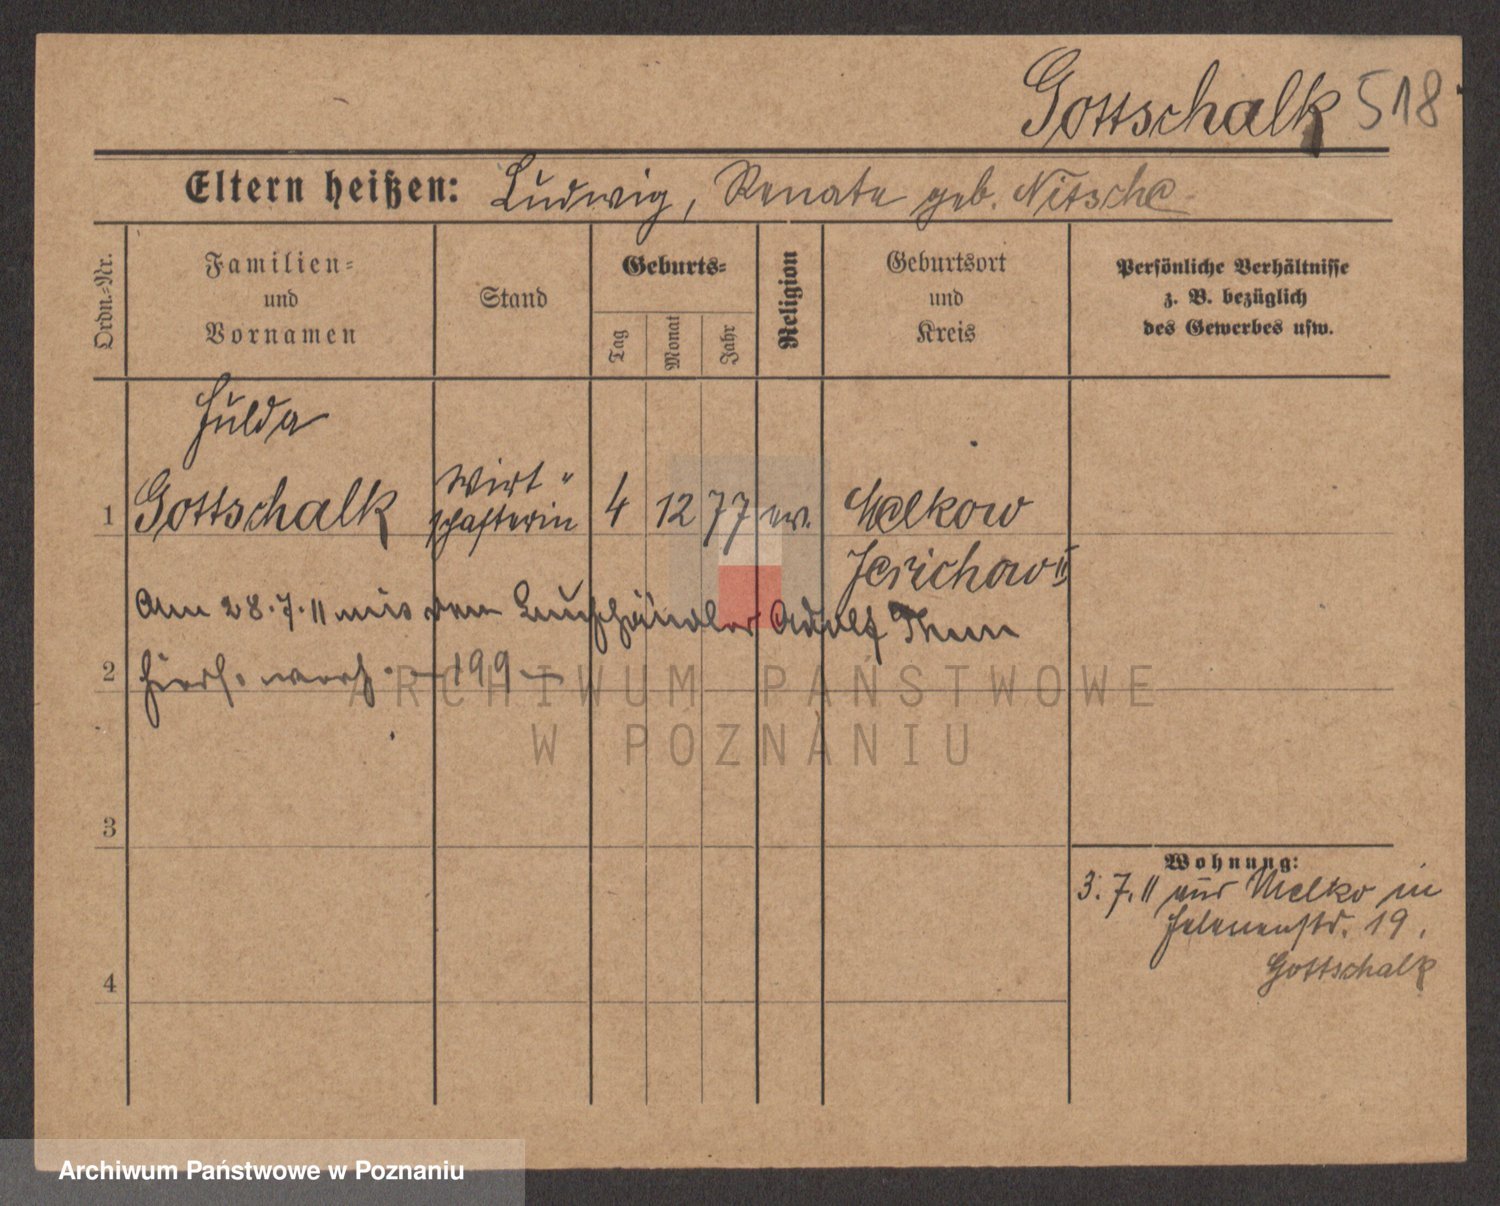 Gottschalk 518
Eltern heißen: Ludwig, Renate geb. Nitsche
Ordn.-Nr.
Familien- und Vornamen
Stand
Geburts-
Tag
Monat
Jahr
Religion
Geburtsort und Kreis
Persönliche Verhältnisse z. B. bezüglich des Gewerbes usw.
Hulda
1 Gottschalk Wirtschafterin 4 12 77 ev. Melkow
Jerichow II
Am 28.7.11 mit dem Buchhändler Adolf Thun
2 hiers. verh. – 199 –
3
4
Wohnung:
3.7.11 aus Melko in
Helenenstr. 19.
Gottschalk
ARCHIWUM PAŃSTWOWE
W POZNANIU
Archiwum Państwowe w Poznaniu